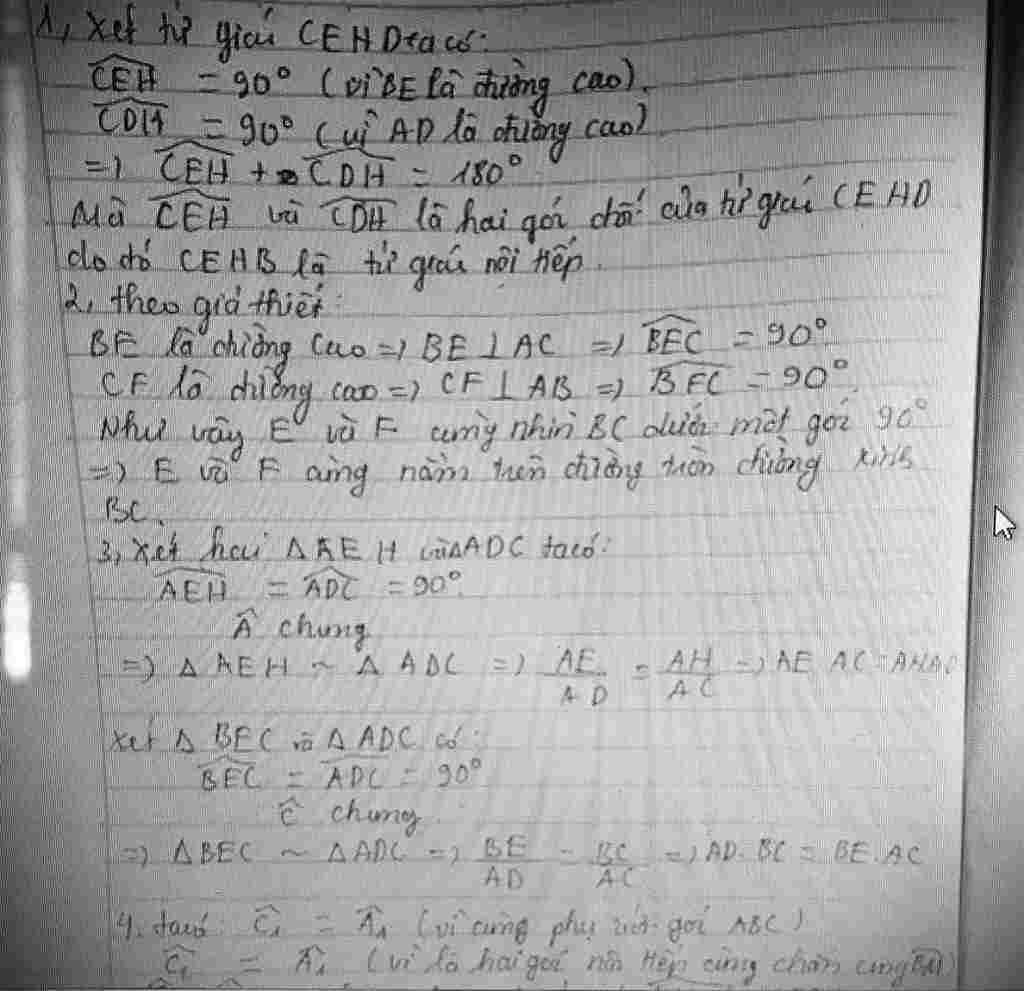 1, Xét tứ giác CEHD ta có:
CEH = 90° (vì BE là đường cao).
CDH = 90° (vì AD là đường cao)
=> CEH + CDH = 180°
Mà CEH và CDH là hai góc đối của tứ giác CEHD
do đó CEHB là tứ giác nội tiếp.
2, theo giả thiết:
BE là đường cao => BE ⊥ AC => BEC = 90°
CF là đường cao => CF ⊥ AB => BFC = 90°.
Như vậy E và F cùng nhìn BC dưới một góc 90°
=> E và F cùng nằm trên đường tròn đường kính
BC.
3, xét hai Δ AEH và Δ ADC ta có:
AEH = ADC = 90°
Â chung
=> Δ AEH ~ Δ ADC => AE/AD = AH/AC => AE AC =
Xét Δ BEC và Δ ADC có:
BEC = ADC = 90°
Ĉ chung
=> Δ BEC ~ Δ ADC => BE/AD = BC/AC => AD. BC = BE. AC
4. ta có Ĉ₁ = Â₁ (vì cùng phụ với góc ABC)
Ĉ₁ = Â₁ (vì là hai góc nội tiếp cùng chắn cung